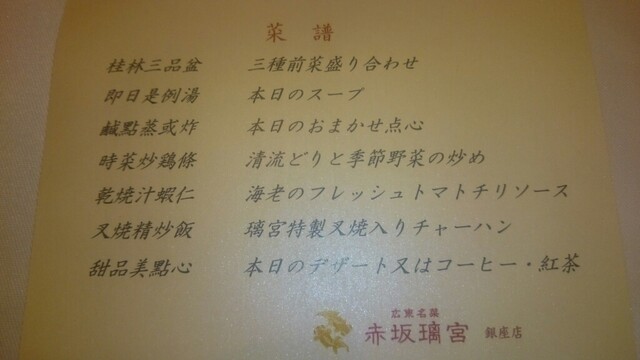 菜譜
桂林三品盆 三種前菜盛り合わせ
即日是例湯 本日のスープ
鹹點蒸或炸 本日のおまかせ点心
時菜炒鶏條 清流どりと季節野菜の炒め
乾焼汁蝦仁 海老のフレッシュトマトチリソース
叉焼精炒飯 璃宮特製叉焼入りチャーハン
甜品美點心 本日のデザート又はコーヒー・紅茶
広東名菜
赤坂璃宮 銀座店